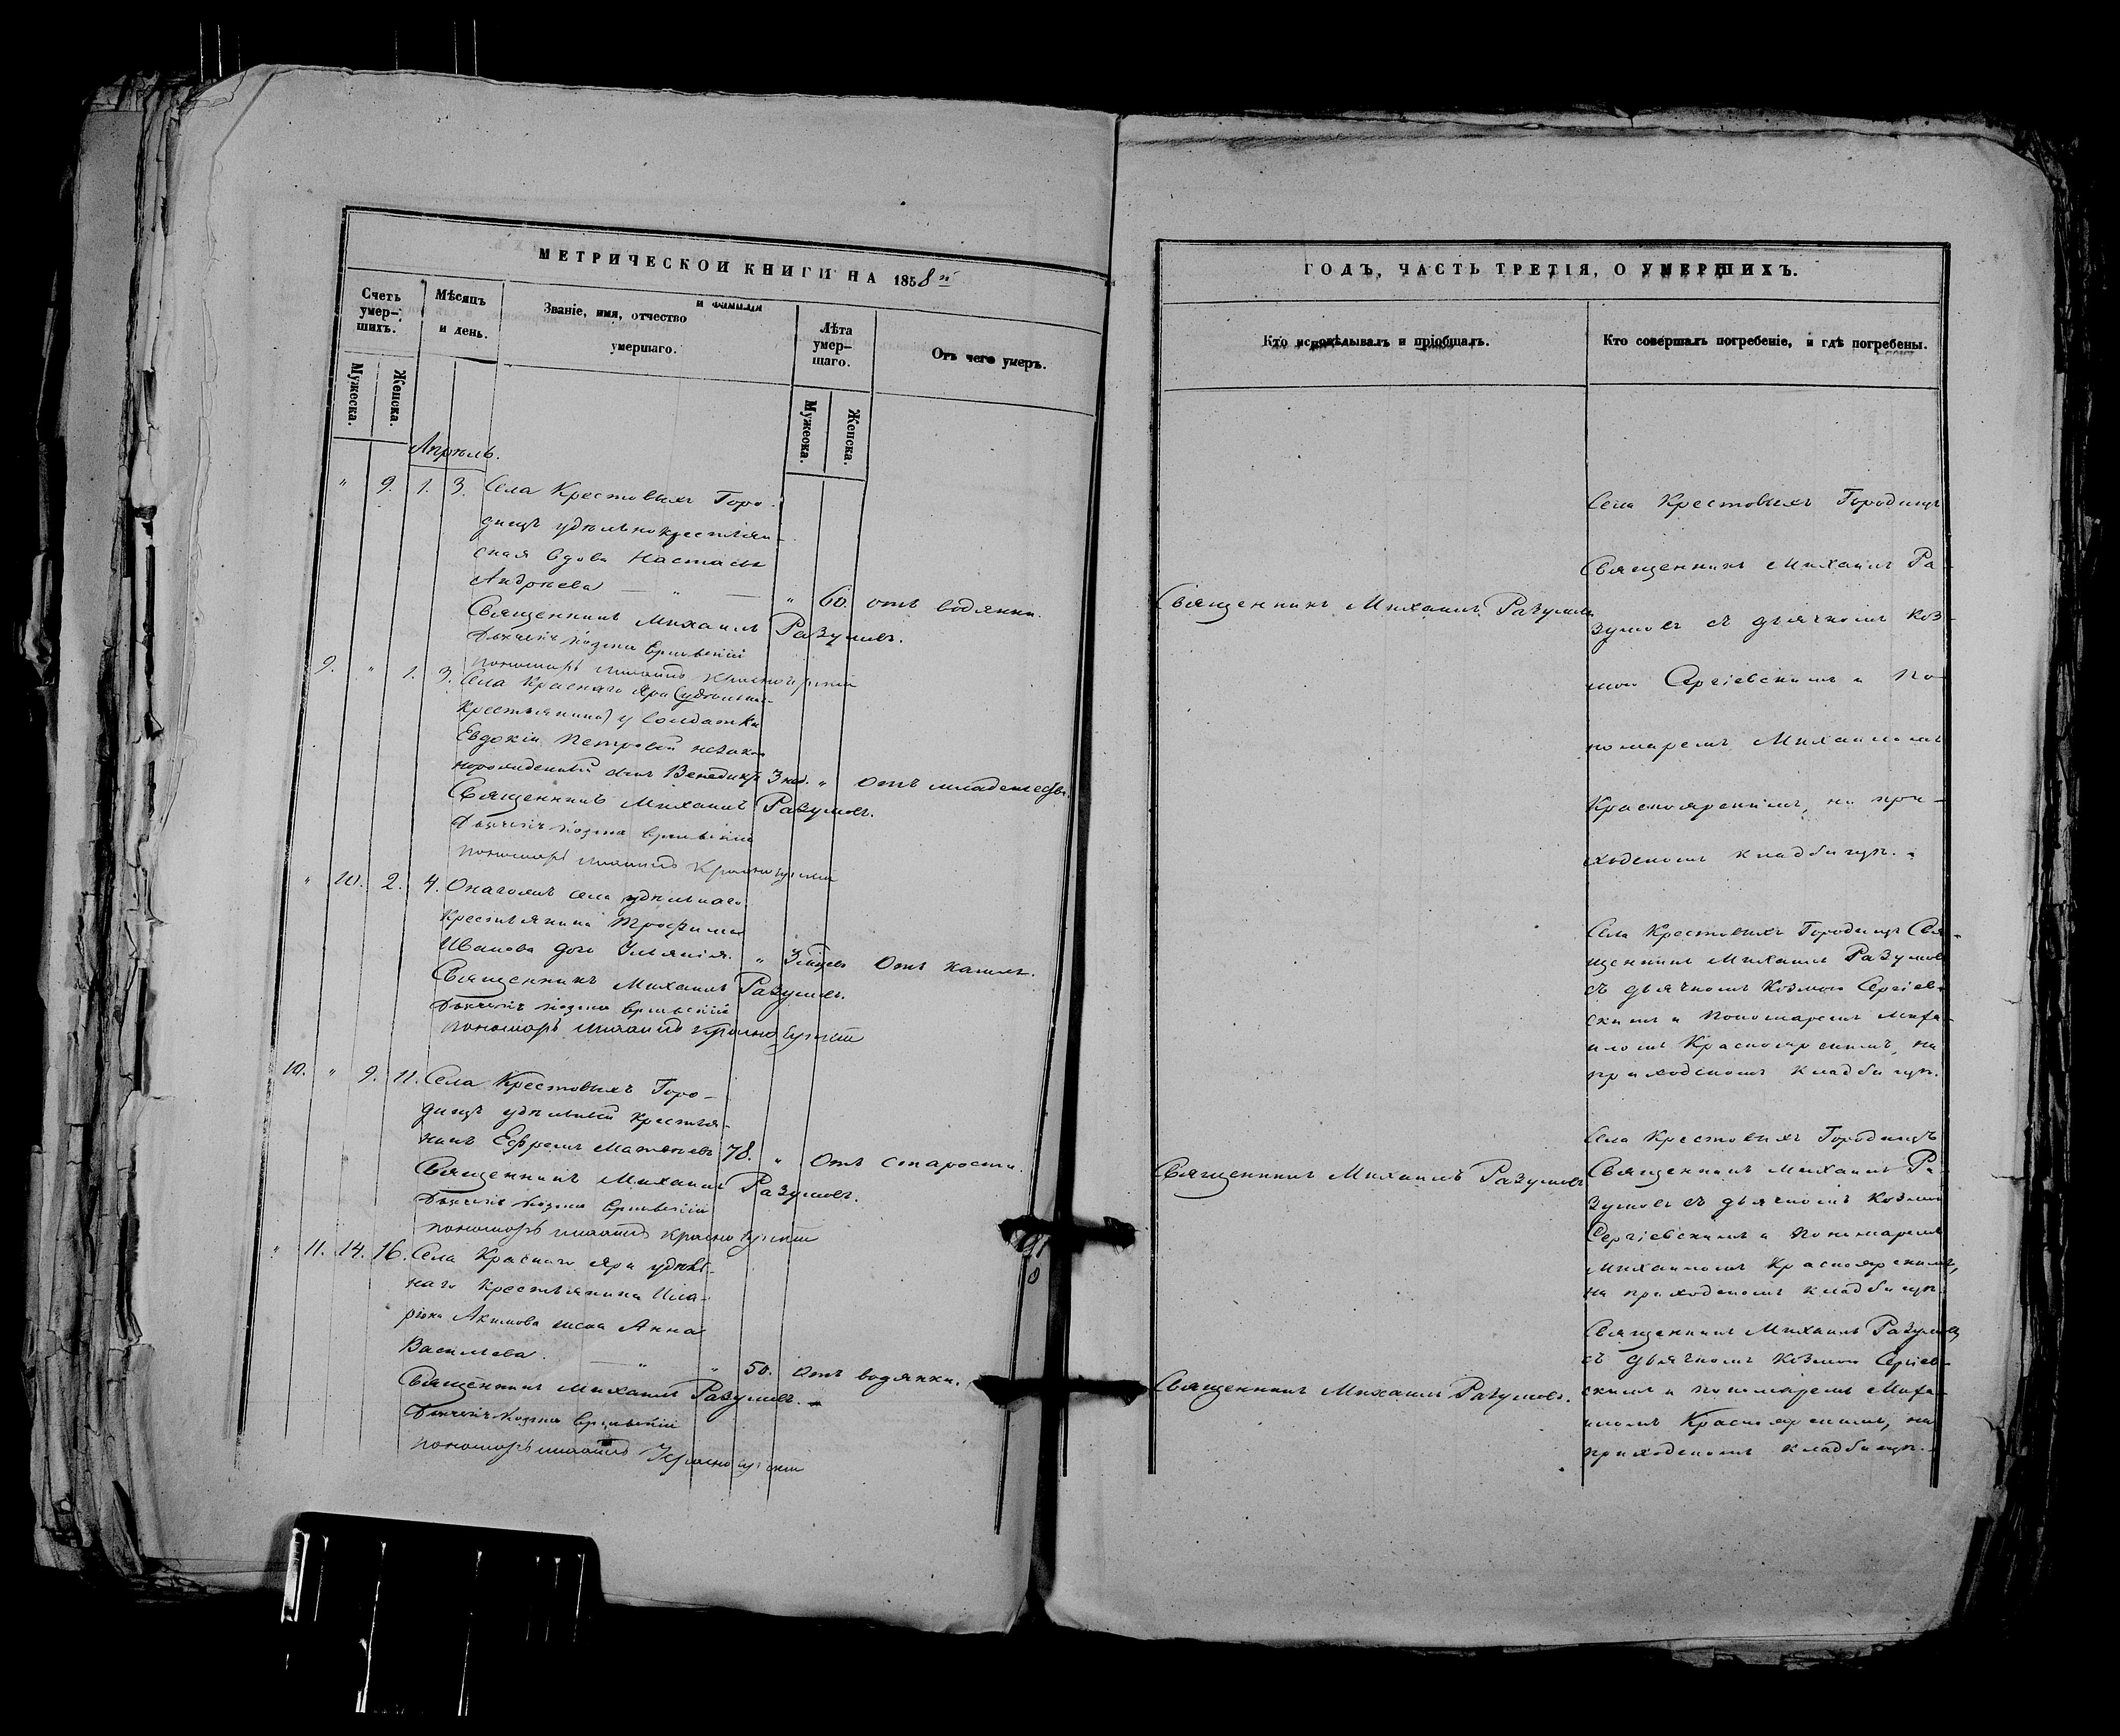 МЕТРИЧЕСКОЙ КНИГИ НА 1858 й
Счетъ умер-шихъ.
Мужеска.
Женска.
Мѣсяцъ и день.
Званіе, имя, отчество и фамилія умершаго.
Лѣта умер-шаго.
Мужеска.
Женска.
Отъ чего умеръ.
Апрѣль.
" 9. 1. 3. Села Крестовыхъ Горо-
дищъ удѣльнокрестьян-
ская вдова Настасья
Андреева — " — " 60. отъ водянки.
Священникъ Михаилъ Разумовъ.
Дьячекъ Козма Сергіевскій
Пономарь Михаилъ Красноярскій
9. " 1. 3. Села Краснаго Яра (удѣльнаго
крестьянина) у солдатки
Евдокіи Петровой незакон
норожденный сынъ Венедиктъ 3 нед. " Отъ младенчества.
Священникъ Михаилъ Разумовъ.
Дьячекъ Козма Сергіевскій
Пономарь Михаилъ Красноярскій
" 10. 2. 4. Онагожъ села удѣльнаго
крестьянина Трофима
Иванова дочь " Отъ кашля.
Священникъ Михаилъ Разумовъ.
Дьячекъ Козма Сергіевскій
Пономарь Михаилъ Красноярскій
10. " 9. 11. Села Крестовыхъ Горо-
дищъ удѣльный крестья-
нинъ Ефремъ Матвѣевъ 78. " Отъ старости.
Священникъ Михаилъ Разумовъ.
Дьячекъ Козма Сергіевскій
Пономарь Михаилъ Красноярскій
" 11. 14. 16. Села Краснаго Яра удѣль-
наго крестьянина Ила-
ріона Акимова жена Анна
Васильева. — " " 50. Отъ водянки.
Священникъ Михаилъ Разумовъ.
Дьячекъ Козма Сергіевскій
Пономарь Михаилъ Красноярскій
ГОДЪ, ЧАСТЬ ТРЕТІЯ, О УМЕРШИХЪ.
Кто исповѣдывалъ и пріобщалъ.
Кто совершалъ погребеніе, и гдѣ погребены.
Священникъ Михаилъ Разумовъ
Села Крестовыхъ Городищъ
Священникъ Михаилъ Ра-
зумовъ съ дьячкомъ Коз-
мою Сергіевскимъ и По-
номаремъ Михаиломъ
Красноярскимъ, на при-
ходскомъ кладбищѣ.
Села Крестовыхъ Городищъ Свя-
щенникъ Михаилъ Разумовъ
съ дьячкомъ Козмою Сергіев-
скимъ и Пономаремъ Миха-
иломъ Красноярскимъ, на
приходскомъ кладбищѣ.
Священникъ Михаилъ Разумовъ
Села Крестовыхъ Городищъ
Священникъ Михаилъ Ра-
зумовъ съ дьячкомъ Козмой
Сергіевскимъ и Пономаремъ
Михаиломъ Красноярскимъ,
на приходскомъ кладбищѣ.
Священникъ Михаилъ Разумовъ.
Священникъ Михаилъ Разумовъ
съ дьячкомъ Козмою Сергіев-
скимъ и пономаремъ Миха-
иломъ Красноярскимъ, на
приходскомъ кладбищѣ.